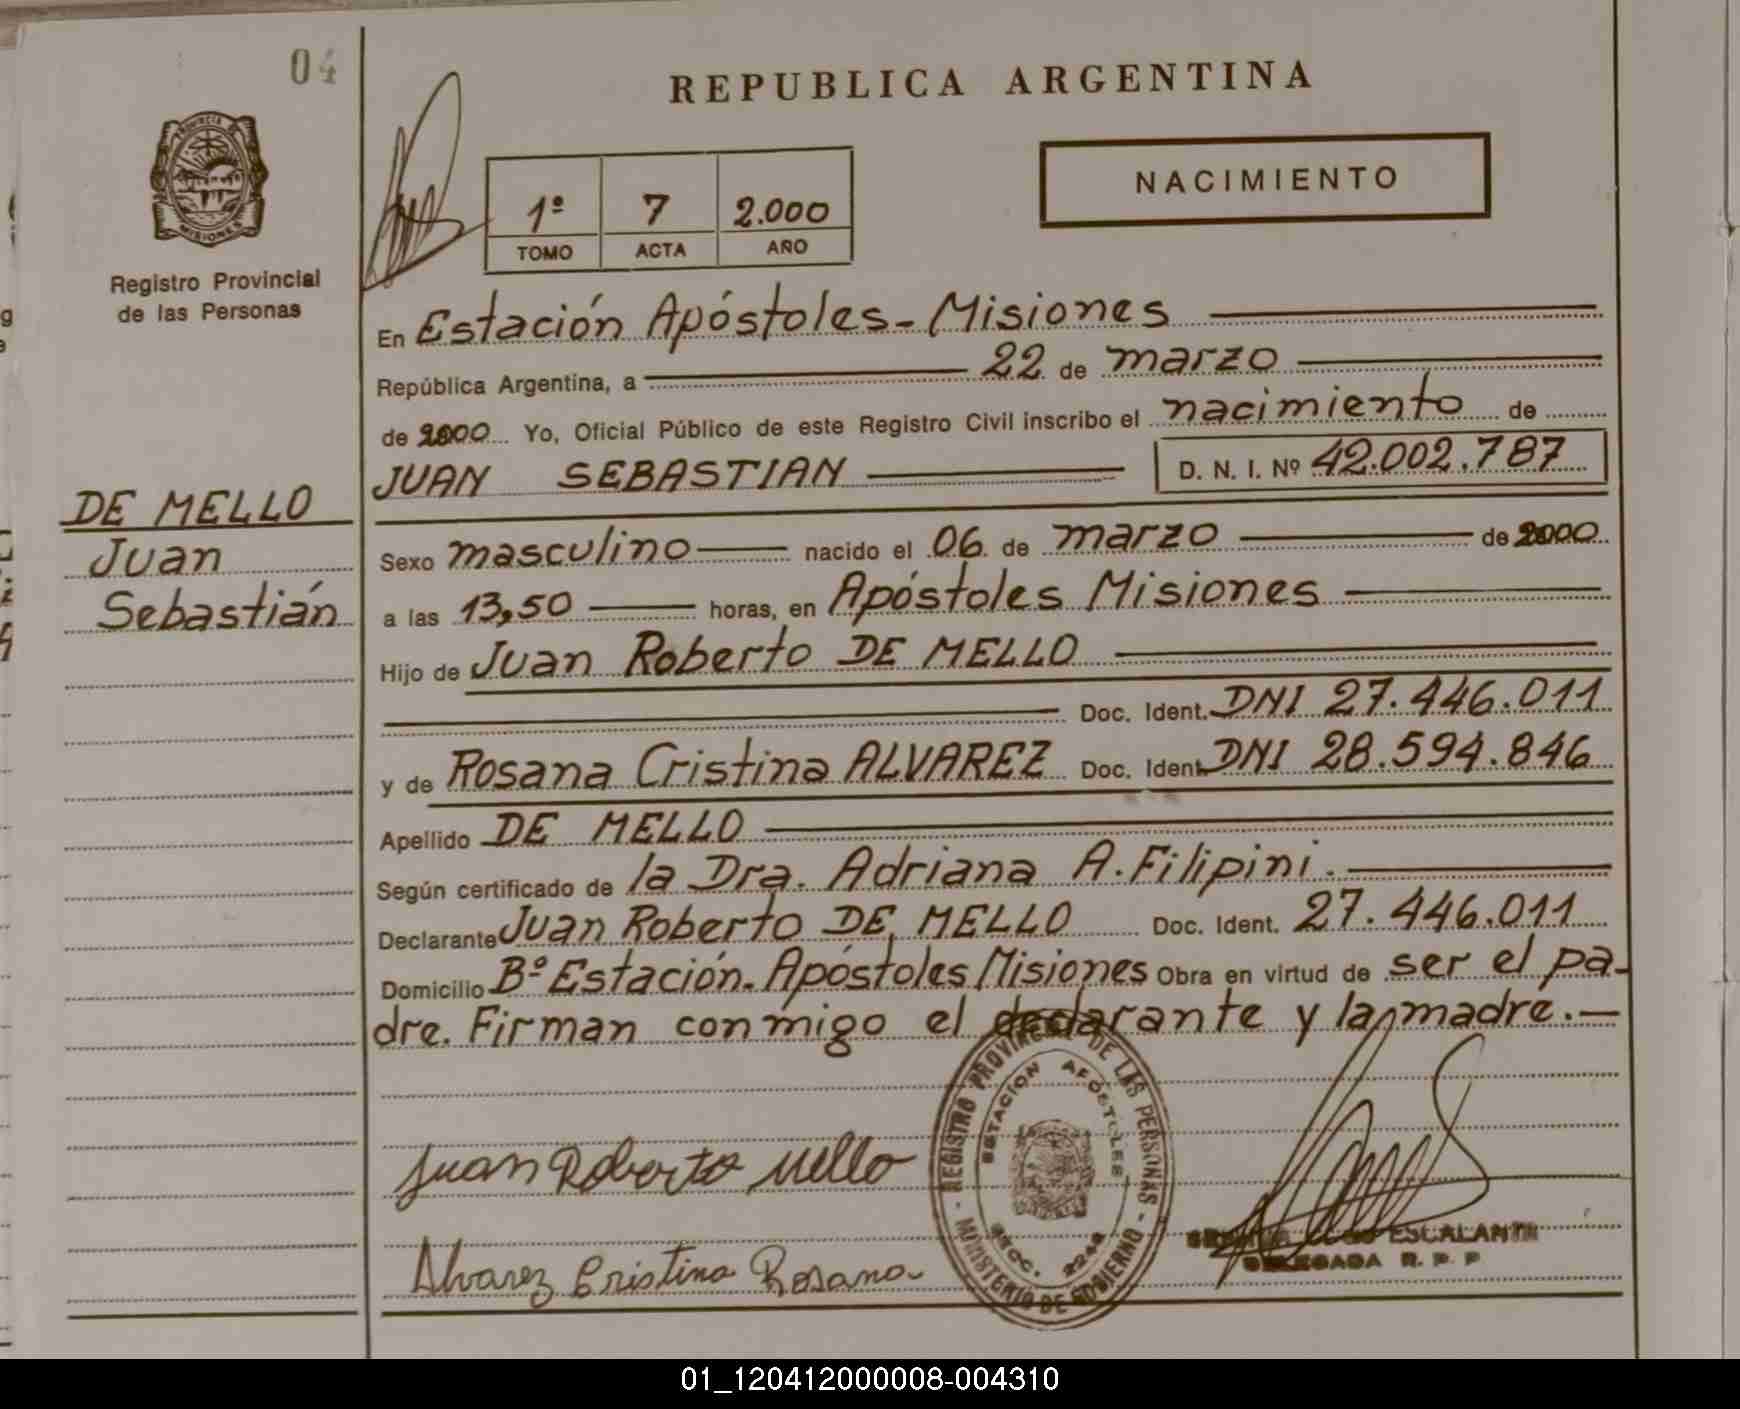 04
REPUBLICA ARGENTINA
NACIMIENTO
1º 7 2.000
TOMO ACTA AÑO
PROVINCIA DE MISIONES
Registro Provincial
de las Personas
En Estación Apóstoles - Misiones
República Argentina, a 22 de marzo
de 2000 Yo, Oficial Público de este Registro Civil inscribo el nacimiento de
JUAN SEBASTIAN D. N. I. Nº 42.002.787
DE MELLO
Juan
Sebastián
Sexo masculino nacido el 06 de marzo de 2000
a las 13,50 horas, en Apóstoles Misiones
Hijo de Juan Roberto DE MELLO
Doc. Ident. DNI 27.446.011
y de Rosana Cristina ALVAREZ Doc. Ident. DNI 28.594.846
Apellido DE MELLO
Según certificado de la Dra. Adriana A. Filipini.
Declarante Juan Roberto DE MELLO Doc. Ident. 27.446.011
Domicilio Bº Estación. Apóstoles Misiones Obra en virtud de ser el pa-
dre. Firman conmigo el declarante y la madre.-
REGISTRO PROVINCIAL DE LAS PERSONAS - MINISTERIO DE GOBIERNO -
ESTACION APÓSTOLES
SECC. 2248
Juan Roberto Mello
Alvarez Cristina Rosana
ESCALANTE
DELEGADA R. P. P
01_120412000008-004310